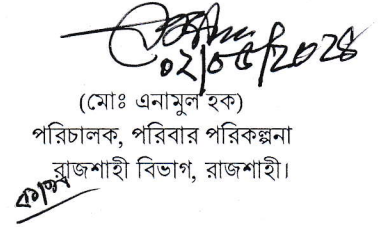 ০২/০৫/২০২৪
(মোঃ এনামুল হক)
পরিচালক, পরিবার পরিকল্পনা
রাজশাহী বিভাগ, রাজশাহী।